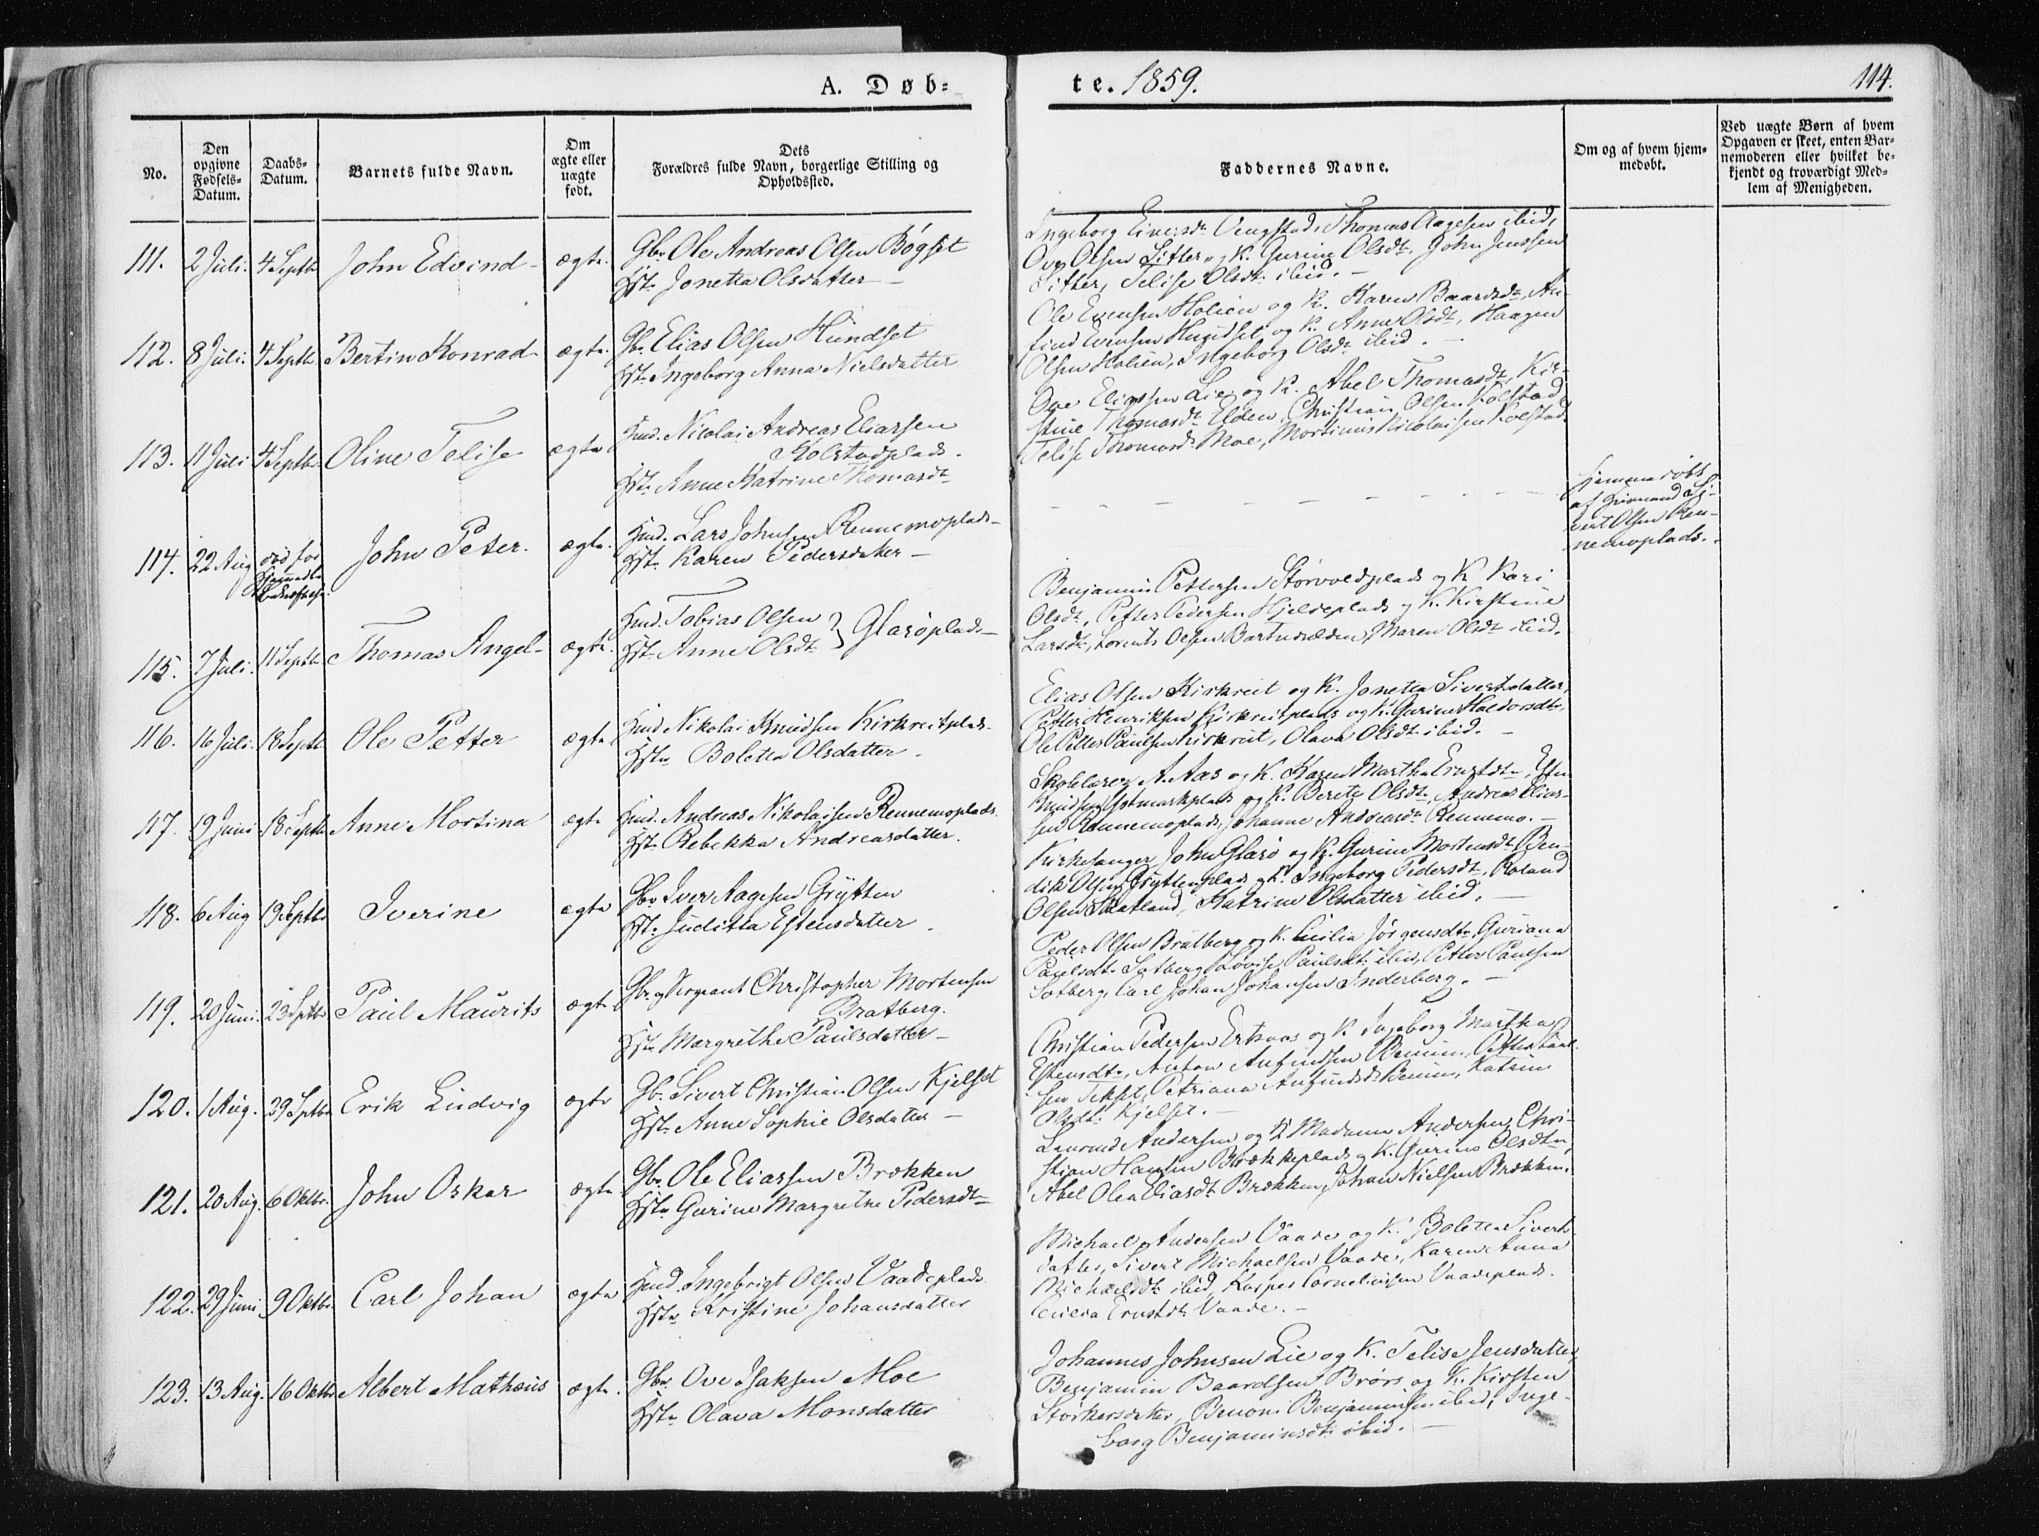 A. Døb=
te. 1859.
114.
No.
Den opgivne Fødsels-Datum.
Daabs-Datum.
Barnets fulde Navn.
Om ægte eller uægte født.
Dets Forældres fulde Navn, borgerlige Stilling og Opholdssted.
Faddernes Navne.
Om og af hvem hjem-medøbt.
Ved uægte Børn af hvem Opgaven er skeet, enten Bar-nemoderen eller hvilket be-kjendt og troværdigt Med-lem af Menigheden.
111. 2 Juli. 4 Septbr John Edvind ægte. Gbr Ole Andreas Olsen Bøgset
Hst. Jonetta Olsdatter
Ingeborg Eversdt Vengstad, Thomas Aagesen ibid,
Ove Olsen Sitter og K. Gurine Olsdt. John Jenssen
Sitter, Telise Olsdt. ibid.
112. 8 Juli. 4 Septbr Bertin Konrad ægte. Gbr Elias Olsen Hundset
Hst. Ingeborg Anna Nielsdatter
Ole Evensen Holien og K. Karen Baardsdt, An-
find Evensen Hundset og K. Anne Olsdt, Haagen
Olsen Holien, Ingeborg Olsdt ibid.
113. 11 Juli 4 Septbr. Oline Telise ægte Hmd. Nicolai Andreas Eliassen
Kolstadplads.
Hst. Anne Katrine Thomasdt
Ove Eliassen Lie og K. Abel Thomasdt, Kir-
stine Thomasdt Elden, Christian Olsen Kolstad
Telise Thomasdt Moe, Mortinus Nicolaisen Kolstad.
114. 22 Aug død før John Peter. ægte. Hmd. Lars Johnsen Rennemoplads
Hst. Karen Pedersdatter
Hjemmedøbt
af Huusmand Si-
vert Olsen Ren-
nemoplads.
115. 7 Juli. 11 Septbr Thomas Angel ægte. Hmd. Tobias Olsen } Glasøplads
Hst. Anne Olsdt
Benjamin Pettersen Størvoldplads og K Kari
Olsdt, Petter Pedersen Hjeldeplads og K. Kirstine
Larsdt, Lorents Olsen Bartnesælden, Maren Olsdt ibid.
116. 16 Juli. 18 Septbr Ole Petter ægte Hmd Nikolai Knudsen Kirkreitplads.
Hst. Boletta Olsdatter
Elias Olsen Kirkreit og K. Jonetta Sivertsdatter,
Petter Henriksen Kirkreitplads og K. Gurine Haldorsdt,
Ole Petter Paulsen Kirkreit, Olava Olsdt. ibid.
117. 19 Juni 18 Septbr Anne Mortina ægte Hmd. Andreas Nikolaisen Rennemoplads.
Hst. Rebekka Andreasdatter.
Skolelærer A. Aas og K. Karen Martha Ernstdt, Esten
Knudsen Østmarkplads og K. Berete Olsdt, Andreas Elias-
sen Rennemoplads, Johanne Andreasdt Rennemo.
118. 6 Aug 19 Septbr Iverine ægte Gbr Iver Aagesen Grytten
Hst. Juditta Estensdatter.
Kirkesanger John Glasø og K. Gurine Mortensdt, Ben-
dik Olsen Gryttenplads og K. Ingeborg Pedersdt, Roland
Olsen Skatland, Katrine Olsdatter ibid.
119. 20 Juni. 23 Septbr Paul Maurits ægte Gbr. og Sergeant Christopher Mortensen
Bratberg.
Hst. Margrethe Paulsdatter
Peder Olsen Bratberg og K. Cicilia Jørgensdt, Guriana
Paulsdt. Satberg, Lovise Paulsdt ibid, Petter Paulsen
Satberg, Carl Johan Johansen Inderberg.
120. 1 Aug. 29 Septbr Erik Ludvig ægte Gb. Sivert Christian Olsen Kjelset
Hst. Anne Sophie Olsdatter
Christian Pedersen Erksaas og K Ingeborg Martha
Estensdt, Anton Anfindsen Benum, Petter
sen Tekset, Petriana Anfindsdt Benum, Katrine
Olsdt. Kjelset.
121. 20 Aug. 6 Oktbr. John Oskar ægte Gbr. Ole Eliassen Brækken
Hst. Gurine Margrethe Pedersdt
Lensmd Andersen og K Madame Andersen, Chri-
stian Hansen Brækkeplads og K. Gurine Olsdt,
Abel Olea Eliasdt Brækken, Johan Nielsen Brækken.
122. 29 Juni 9 Oktbr Carl Johan ægte Hmd Ingebrigt Olsen Vaadeplads
Hst. Kristine Johansdatter
Michael Andersen Vaade og K. Boletta Siverts-
datter, Sivert Michaelsen Vaade, Karen Anna
Michaelsdt ibid, Kasper Cornelinsen Vaadeplads.
Ernstdt Vaade.
123. 13 Aug. 16 Oktbr Albert Mathæus ægte. Gbr. Ove Isaksen Moe
Hst. Olava Monsdatter
Johannes Johnsen Lie og K. Telise Jensdatter,
Benjamin Baardsen Brørs og K. Kirsten
Størkersdatter, Benoni Benjaminsen ibid, Inge-
borg Benjaminsdt ibid.